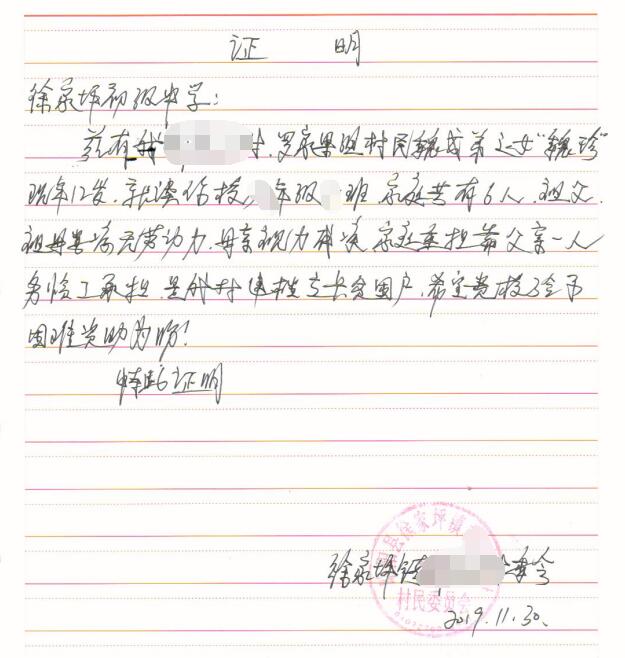 证 明
徐家坪初级中学:
兹有我村,罗家果照村民魏成弟之女“魏珍”
现年12岁.就读你校年级班.家庭共有6人.祖父.
祖母患病无劳动力.母亲视力有误.家庭重担靠父亲一人
务临工承担.是我村建档立卡贫困户.希望贵校给予
困难资助为盼!
特此证明
徐家坪镇委会
县徐家坪镇
村民委员会
2019.11.30.